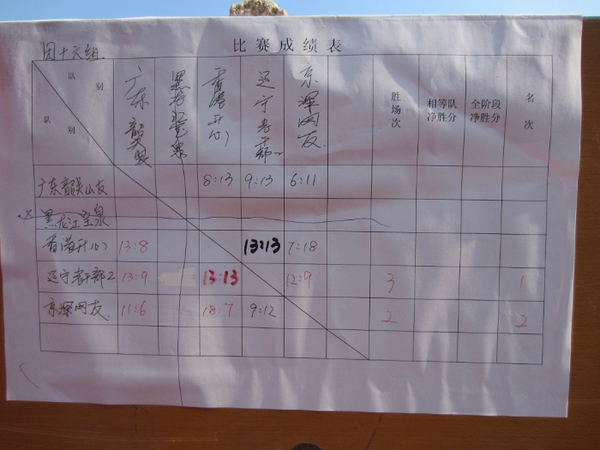 比赛成绩表
团十六组
队别 广东韶关 黑龙江宝泉 香港开心 辽宁老干部二 京深网友 胜场次 相等队净胜分 全阶段净胜分 名次
队别
广东韶关山友 8:13 9:13 6:11
黑龙江宝泉
香港开心 13:8 13:13 7:18
辽宁老干部2 13:9 13:13 12:9 3 1
京深网友 11:6 18:7 9:12 2 2